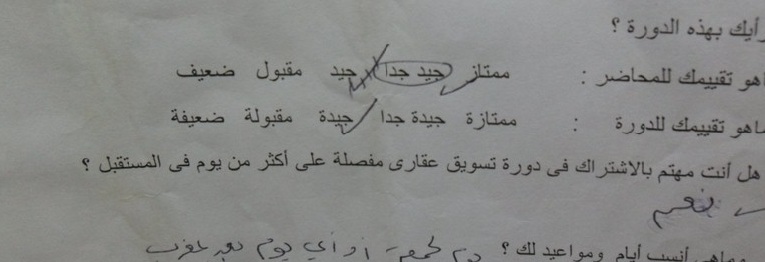 رأيك بهذه الدورة ؟
ماهو تقييمك للمحاضر : ممتاز جيد جدا جيد مقبول ضعيف
ماهو تقييمك للدورة : ممتازة جيدة جدا جيدة مقبولة ضعيفة
هل أنت مهتم بالاشتراك فى دورة تسويق عقارى مفصلة على أكثر من يوم فى المستقبل ؟
نعم
وماهى أنسب أيام ومواعيد لك ؟ يوم الجمعة أو أي يوم بعد المغرب